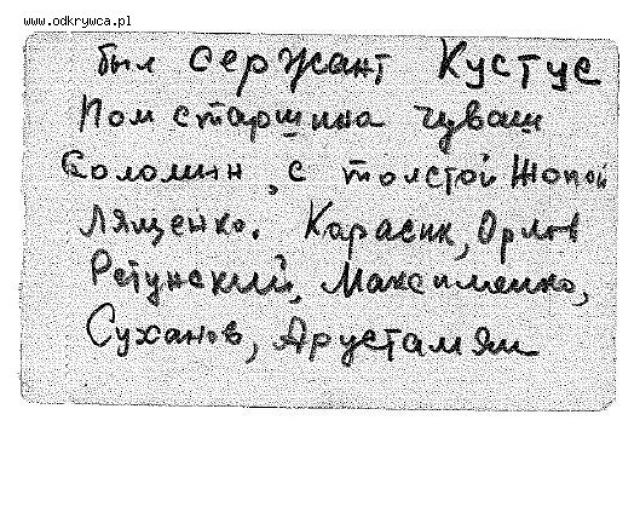 www.odkrywca.pl
был сержант Кустус
Пом старшина чуваш
Соломин, с толстой жопой
Лященко. Карасик, Орлов
Ретунский, Максименко,
Суханов, Арустамян